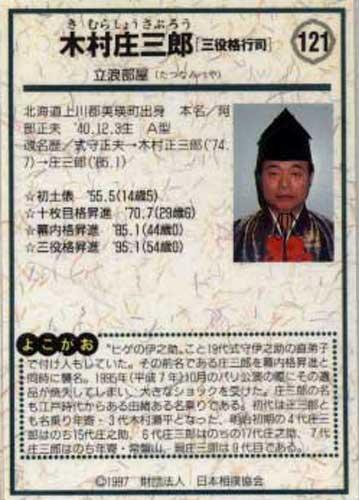 きむらしょうざぶろう
木村庄三郎[三役格行司]
121
立浪部屋(たつなみべや)
北海道上川郡美瑛町出身 本名/阿
部正夫 '40.12.3生 A型
改名歴/式守正夫→木村正三郎('74.
7)→庄三郎('85.1)
☆初土俵 '55.5(14歳5)
☆十枚目格昇進 '70.7(29歳6)
☆幕内格昇進 '85.1(44歳0)
☆三役格昇進 '95.1(54歳0)
よこがお
"ヒゲの伊之助"こと19代式守伊之助の直弟子
で付け人もしていた。その前名である庄三郎を幕内格昇進と
同時に襲名。1995年(平成7年)10月のパリ公演の際にその遺
品が焼失してしまい、大きなショックを受けた。庄三郎の名
も江戸時代からある由緒ある名乗りである。初代は庄三郎と
も名乗り年寄・3代木村瀬平となった、明治初期の4代庄三
郎はのち15代庄之助、6代庄三郎はのちの17代庄之助、7代
庄三郎はのち年寄・常盤山。現庄三郎は9代目である。
©1997 財団法人 日本相撲協会